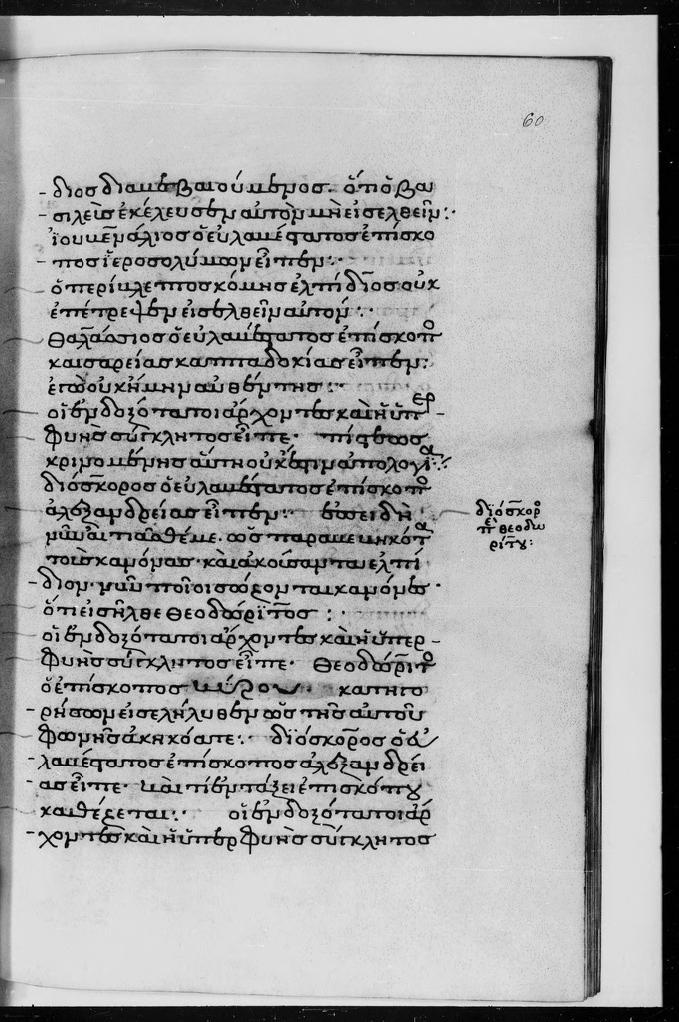 60
διος διαμεβαιούμενος. ὅτι ὁ βα
σιλεὺς ἐκέλευσεν αὐτὸν μὴ εἰσελθεῖν:
ἰουμενάλιος ὁ εὐλαμέστατος ἐπίσκο
πος ἱεροσολύμων εἶπεν:
ὁ περίμλεπτος κόμης ἐλπίδιος οὐκ
ἐπέτρεψεν εἰσελθεῖν αὐτόν:
θαλάσσιος ὁ εὐλαμέστατος ἐπίσκοπος
καισαρείας καππαδοκίας εἶπεν:
ἐγὼ οὐκ ἤμην αὐθέντης:
οἱ ἐνδοξότατοι ἄρχοντες καὶ ἡ ὑπερ
φυὴς σύγκλητος εἶπε· πίστεως
κρινομένης αὕτη οὐκ ἔστιν ἀπολογία:
διόσκορος ὁ εὐλαμέστατος ἐπίσκοπος
ἀλεξανδρείας εἶπεν: ἐπειδὴ
νῦν αἰτιᾶσθέ με. ὡς παραμεμηκότα
τοὺς κανόνας. καὶ ἀκούσαντα ἐλπί
διον· νῦν ποῖοι σώζονται κανόνες
ὅτι εἰσῆλθε Θεοδώρϊτος:
οἱ ἐνδοξότατοι ἄρχοντες καὶ ἡ ὑπερ
φυὴς σύγκλητος εἶπε· Θεοδώριτος
ὁ ἐπίσκοπος κύρου· κατηγο
ρήσων εἰσελήλυθεν ὡς τῆς αὐτοῦ
φωνῆς ἀκηκόατε: διόσκορος ὁ εὐ
λαμέστατος ἐπίσκοπος ἀλεξανδρεί
ας εἶπε· καὶ τί ἐν τάξει ἐπισκόπου
καθέζεται: οἱ ἐνδοξότατοι ἄρ
χοντες καὶ ἡ ὑπερφυὴς σύγκλητος
διόσκορος
π Θεοδω
ρίτου: